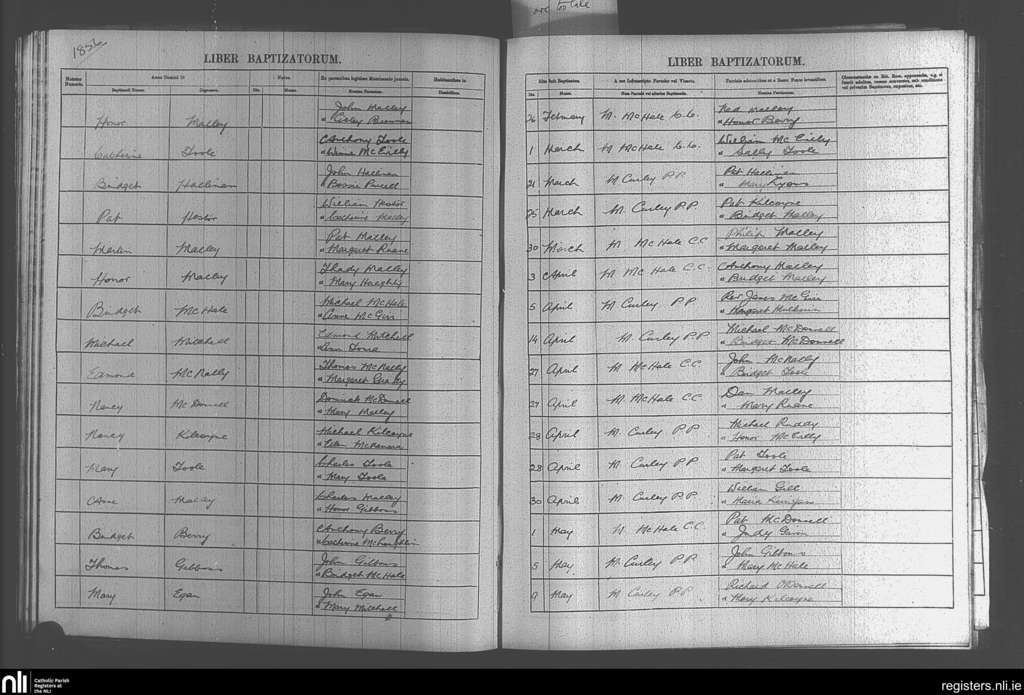 1856
are too late
LIBER BAPTIZATORUM.
LIBER BAPTIZATORUM.
Anno Domini 18
Natus.
Ex parentibus legitimo Matrimonio junctis.
Habitantibus in
Baptismi Nomen.
Cognomen.
Die.
Mense.
Nomina Parentum.
Domicilium.
Die.
Mense.
Nomina Patrinorum.
Honor Malley John Malley
26 February M. McHale C.C. Ned Malley
" Honor Berry
Catherine Toole Anthony Toole
" Winne McEvilly
1 March M McHale C.C. William McEvilly
" Sally Toole
Bridget Hallinan John Hallinan
21 March M Curley P.P. Pat Hallinan
" Mary Lyons
Pat Hestor William Hestor
" Catherine Malley
25 March M. Curley P.P. Pat Kilcoyne
" Bridget Malley
Martin Malley Pat Malley
" Margaret Ruane
30 March M McHale C.C. Philip Malley
" Margaret Malley
Honor Malley Thady Malley
" Mary Heraghty
3 April M McHale C.C. Anthony Malley
" Bridget Malley
Bridget McHale Michael McHale
" Anne McGirr
5 April M Curley P.P. Rev James McGirr
" Margaret
Michael Mitchell Edmond Mitchell
14 April M. Curley P.P. Michael McDonnell
" Bridget McDonnell
Edmond McNally Thomas McNally
" Margaret
27 April M McHale C.C. John McNally
" Bridget
Nancy McDonnell Dominick McDonnell
" Mary Malley
27 April M. McHale C.C. Dan Malley
" Mary Ruane
Nancy Kilcoyne Michael Kilcoyne
" McNamara
28 April M. Curley P.P. Michael Ruddy
" Honor McEvilly
Mary Toole Charles Toole
" Mary Toole
28 April M Curley P.P. Pat Toole
" Margaret Toole
Anne Malley Charles Malley
" Honor Gibbons
30 April M Curley P.P. William Gill
" Maria Kerrigan
Bridget Berry Anthony Berry
" Catherine McLoughlin
1 May M McHale C.C. Pat McDonnell
" Judy Gavin
Thomas Gibbons John Gibbons
" Bridget McHale
5 May M. Curley P.P. John Gibbons
" Mary McHale
Mary Egan John Egan
" Mary Mitchell
9 May M Curley P.P. Richard O'Donnell
" Mary Kilcoyne
nli
Catholic Parish
Registers at
the NLI
registers.nli.ie